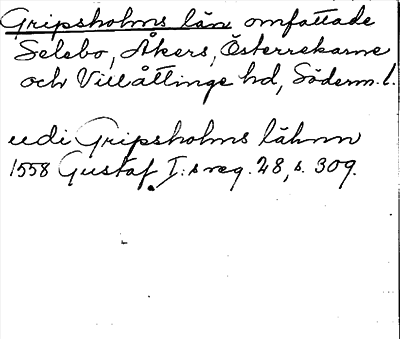 Gripsholms län omfattade
Selebo, Åkers, Österrekarne
och Villåttinge hd, Söderm. l.
udi Gripsholms lähnn
1558 Gustaf I:s reg. 28, s. 309.